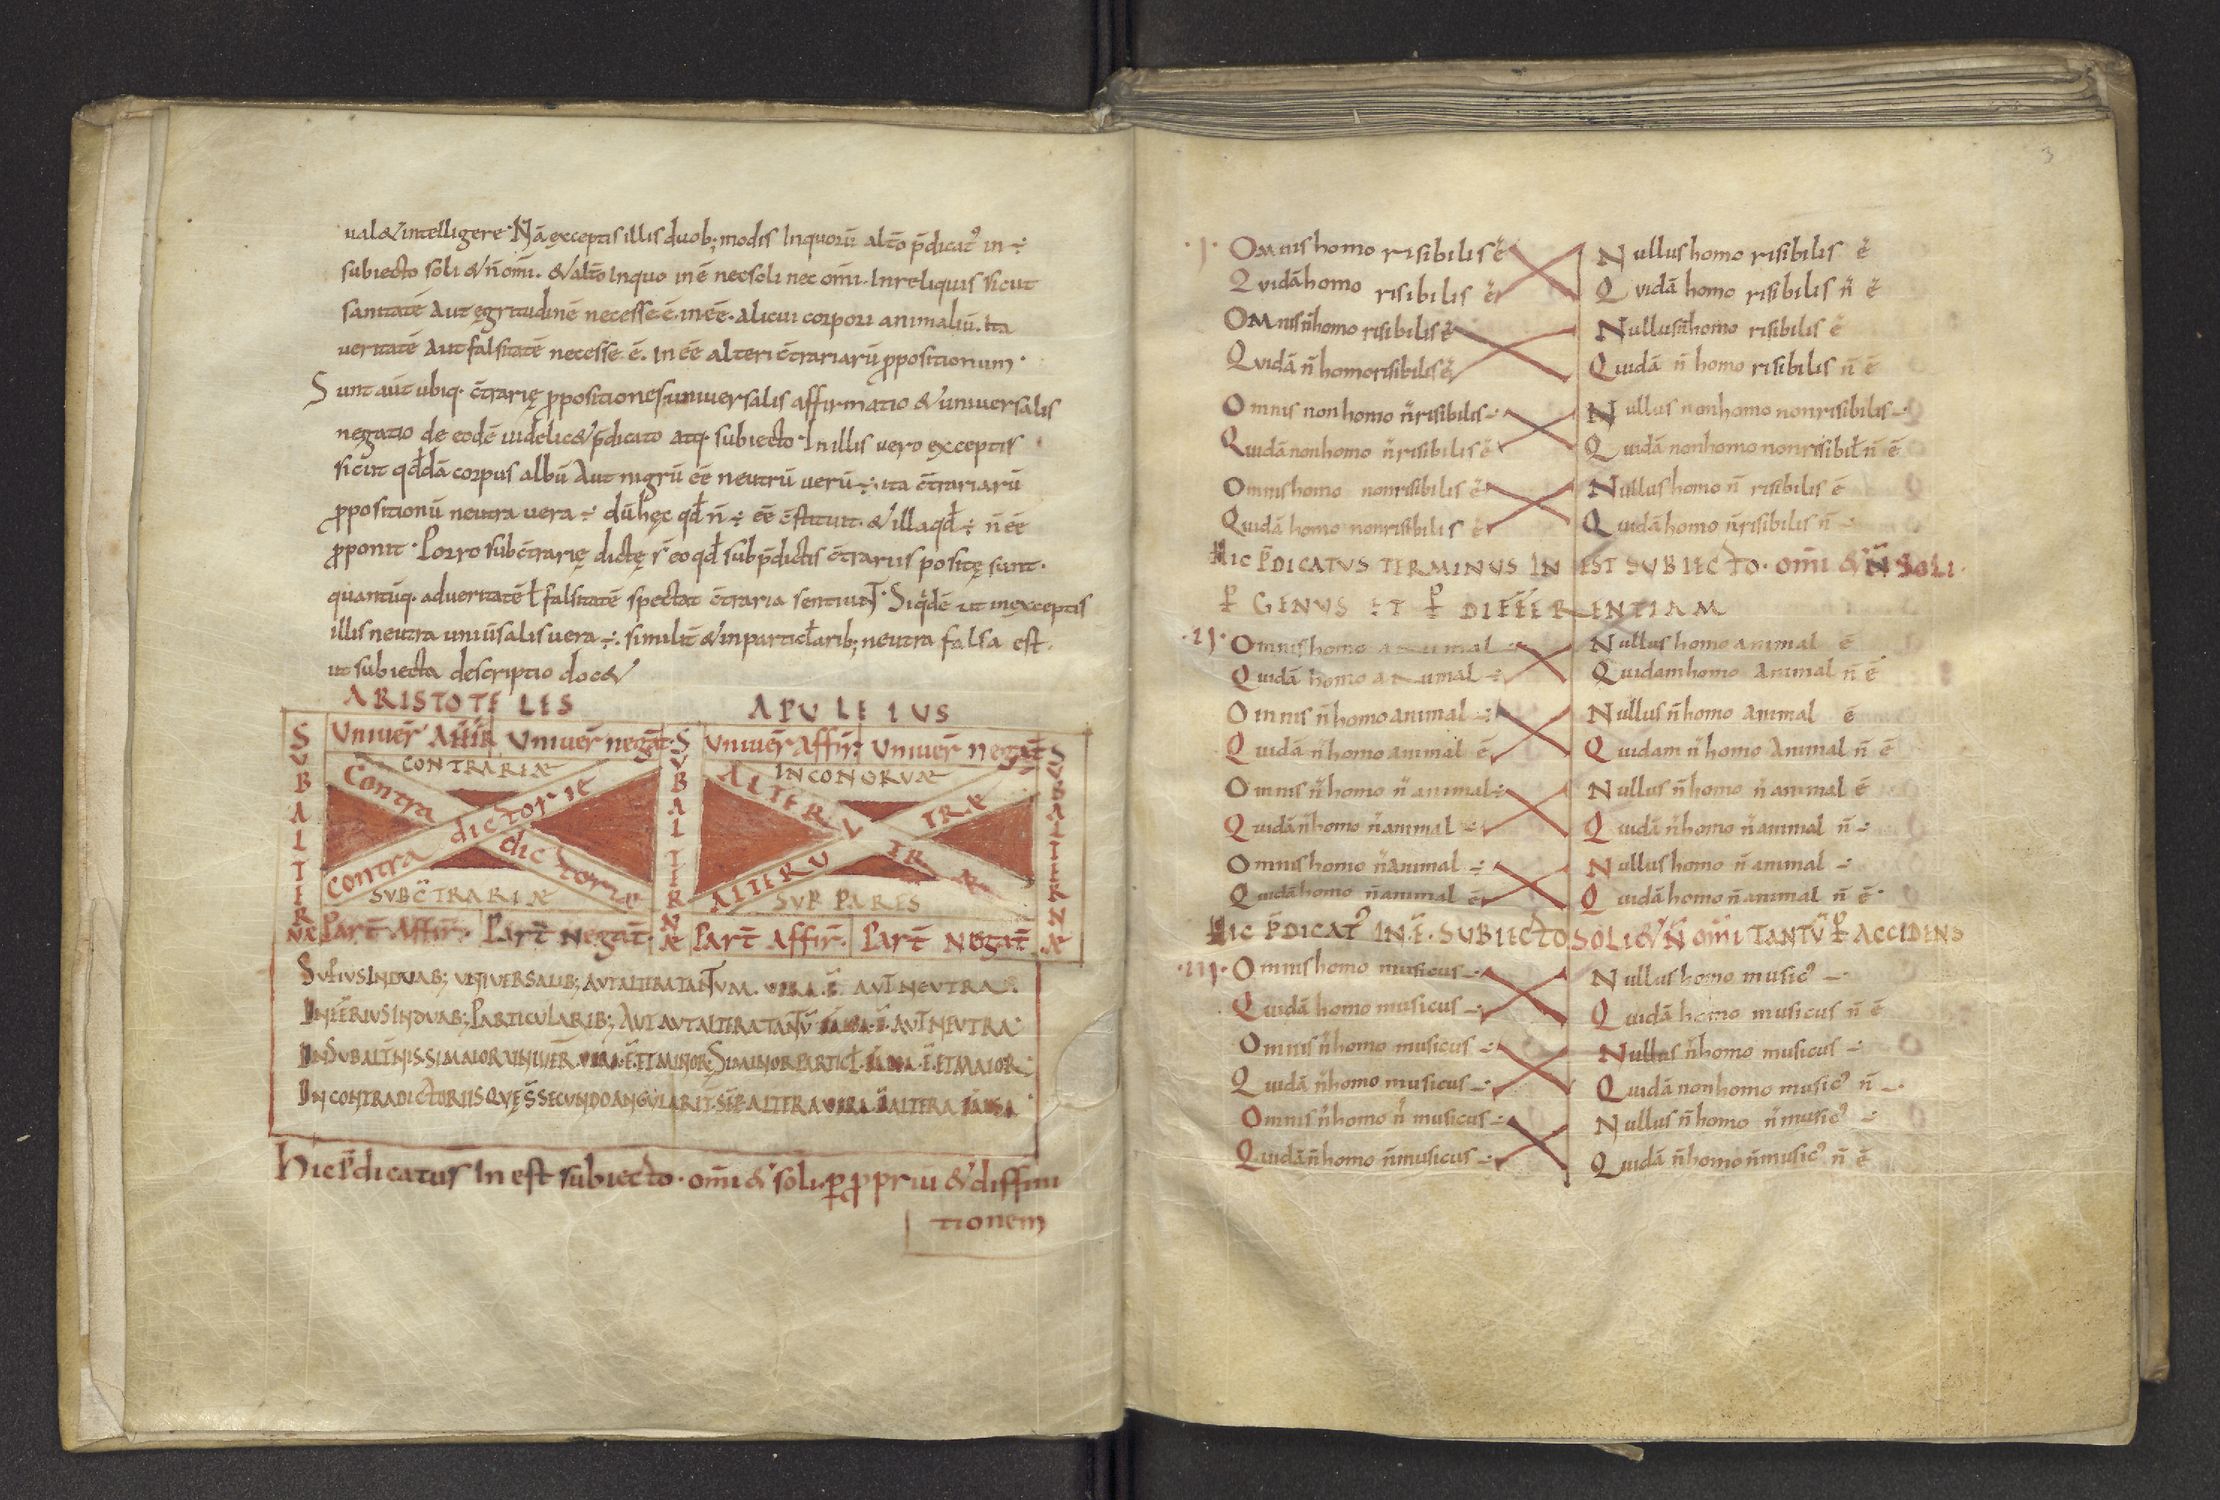 ual&intelligere·Nā exceptis illis duob; modis Inquorū alt̄o p̄dicat᾽ in÷
subiecto soli & n̄ om̄i. & alt̄o Inquo in ē nec soli nec om̄i. In reliquis sicut
sanitatē Aut ęgritudinē necesse ē. in ēē. alicui corpori animaliū. Ita
veritatē Aut falsitatē necesse ē. In ēē alteri c̄trariarū ꝓpositionum·
Sunt aūt ubiq· c̄trarię ꝓpositiones universalis affirmatio & universalis
negatio de eodē uidelic& p̄dicato atq· subiecto· In illis vero exceptis
sicut qđdā corpus albū Aut nigrū ēē neutrū verū÷. ita c̄trariarū
ꝓpositionū neutra vera ÷ dū hęc qđ n̄ ÷ ēē c̄stituit. & illa qđ ÷ n̄ ēē
ꝓponit· Porro subc̄trarię dictę s̄ eo qđ sub p̄dictis c̄trariis positę sunt.
quantūq· ad veritatē ł falsitatē spectat c̄traria sentiunt· Siqđē ut in exceptis
illis neutra uniūsalis vera ÷. similit̄ & in particłarib; neutra falsa est.
ut subiecta descriptio doc&
ARISTOTELES APULEIUS
SUBALTERNÆ
Univer̄ Affir Univer̄ negat̄·
CONTRARIÆ
Contra dictorie
Contra dictorie
SUBC̄TRARIÆ
Part̄ Affir̄· Part̄ Negat̄·
SUBALTERNÆ
Univer̄ Affir̄· Univer̄ negat̄
INCONGRUÆ
ALTERUTRÆ
ALTERUTRÆ
SUPPARES
Part̄ Affir̄· Part̄ Negat̄
SUBALTERNÆ
SUꝑIUS INDUAB; UNIVERSALIB; AUT ALTERA TANTUM. VERA .Ē. AUT NEUTRA.
INFERIUS INDUAB; PARTICULARIB; AUT AUT ALTERA TANTŪ FALSA .Ē. AUT NEUTRA·
IN SUBALT̄NIS. SI MAIOR UNIVER̄. VERA .Ē. ET MINOR· SI MINOR PARTICŁ. FALSA .Ē. ET MAIOR·
IN CONTRADICTORIIS QUĘ S̄ SECUNDO ANGULARIT̄. SEP̄ ALTERA VERA Ē ALTERA FALSA·
Hic p̄dicatus In est subiecto· om̄i & soli. ꝑ ꝓpriū & diffini
tionem
3
·I· Omnis homo risibilis ē Nullus homo risibilis ē
Quidā homo risibilis ē Quidā homo risibilis n̄ ē
Omnis n̄ homo risibilis ē Nullus n̄ homo risibilis ē
Quidā n̄ homo risibilis ē Quidā n̄ homo risibilis n̄ ē
Omnis non homo n̄ risibilis÷ Nullus non homo non risibilis÷
Quidā non homo n̄ risibilis ē Quidā non homo non risibił n̄ ē
Omnis homo non risibilis ē Nullus homo n̄ risibilis ē
Quidā homo non risibilis ē Quidā homo n̄ risibilis n̄ ÷
HIC P̄DICATUS TERMINUS IN EST SUBIECTO· om̄i & N̄ SOLI·
ꝑ GENUS ET ꝑ DIFFERENTIAM
·II· Omnis homo animal ÷ Nullus homo animal ē
Quidā homo animal ÷ Quidam homo animal n̄ ē
Omnis n̄ homo animal ÷ Nullus n̄ homo animal ē
Quidā n̄ homo animal ē Quidam n̄ homo Animal n̄ ē
Omnis n̄ homo n̄ animal÷ Nullus n̄ homo n̄ animal ē
Quidā n̄ homo n̄ animal ÷ Quidā n̄ homo n̄ animal n̄ ÷
Omnis homo n̄ animal ÷ Nullus homo n̄ animal ÷
Quidā homo n̄ animal ē Quidā homo n̄ animal n̄ ē·
HIC P̄DICAT᾽ IN .Ē. SUBIECTO SOLI & N̄ om̄i TANTŪ ꝑ ACCIDENS
·III· Omnis homo musicus ÷ Nullus homo music᾽ ÷
Quidā homo musicus ÷ Quidā homo musicus n̄ ē
Omnis n̄ homo musicus ÷ Nullus n̄ homo musicus ÷
Quidā n̄ homo musicus ÷ Quidā non homo music᾽ n̄ ÷
Omnis n̄ homo n̄ musicus ÷ Nullus n̄ homo n̄ music᾽ ÷
Quidā n̄ homo n̄ musicus ÷ Quidā n̄ homo n̄ music᾽ n̄ ē